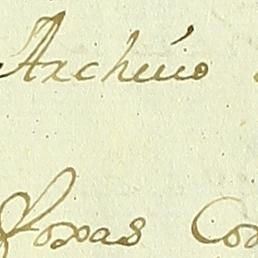 Archivo
Foxas Co